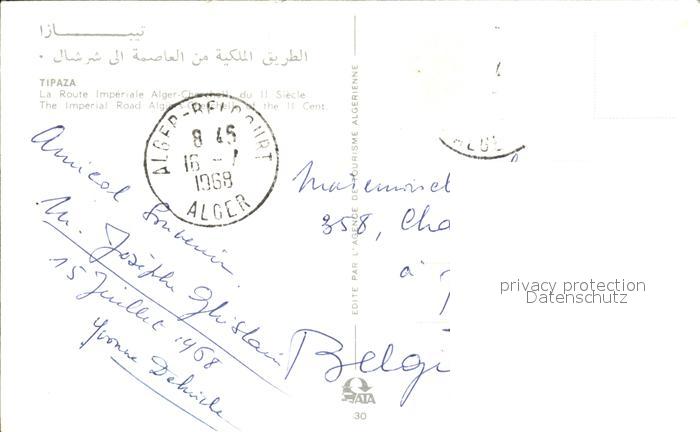 تيبازا
الطريق الملكية من العاصمة الى شرشال •
TIPAZA
La Route Impériale Alger-Cherchell, du II Siècle
The Imperial Road Algiers-Cherchell of the II Cent.
ALGER-BELCOURT
8 45
16 - 7
1968
ALGER
Amical Souvenir
M. Josèphe Ghislain
15 Juillet 1968
Yvonne
EDITE PAR L'AGENCE DE TOURISME ALGERIENNE
358, Cha
à
Belgi
ATA
30
privacy protection
Datenschutz